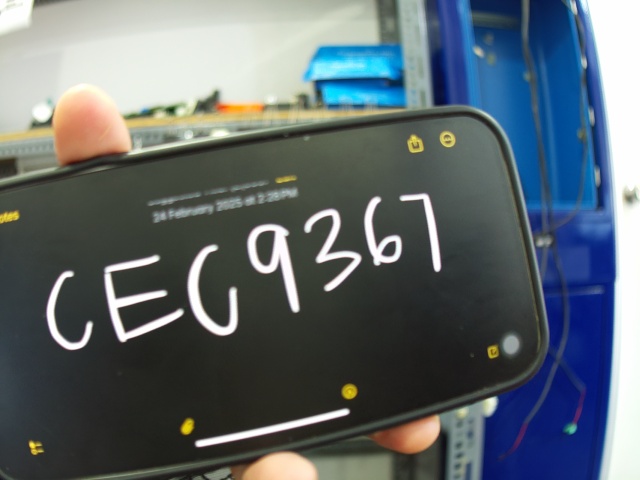 otes
24 February 2025 at 2:28 PM
CEC9367